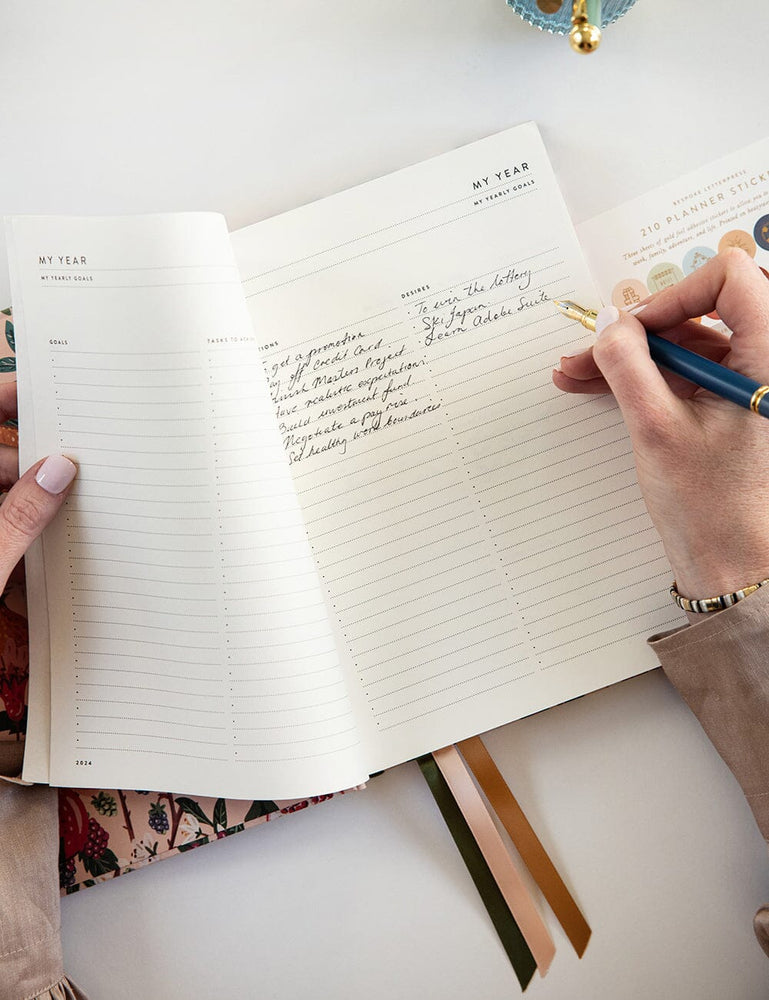 MY YEAR
MY YEARLY GOALS
GOALS
TASKS TO
2024
MY YEAR
MY YEARLY GOALS
IONS
get a promotion
off Credit Card
Masters Project
have realistic expectations
Build investment fund
Negotiate a pay rise
Set healthy work boundaries
DESIRES
To win the lottery
Ski Japan
Learn Adobe Suite
BESPOKE LETTERPRESS
210 PLANNER STICK
Three sheets of gold foil adhesive stickers to allow you
work, family, adventure, and life. Printed on